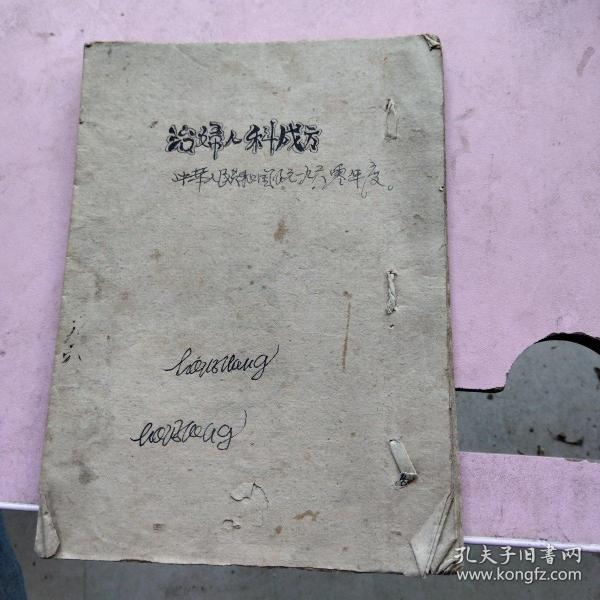 治婦人科成方
中華人民共和国公元一九六零年度。
孔夫子旧書网
www.kongfz.com